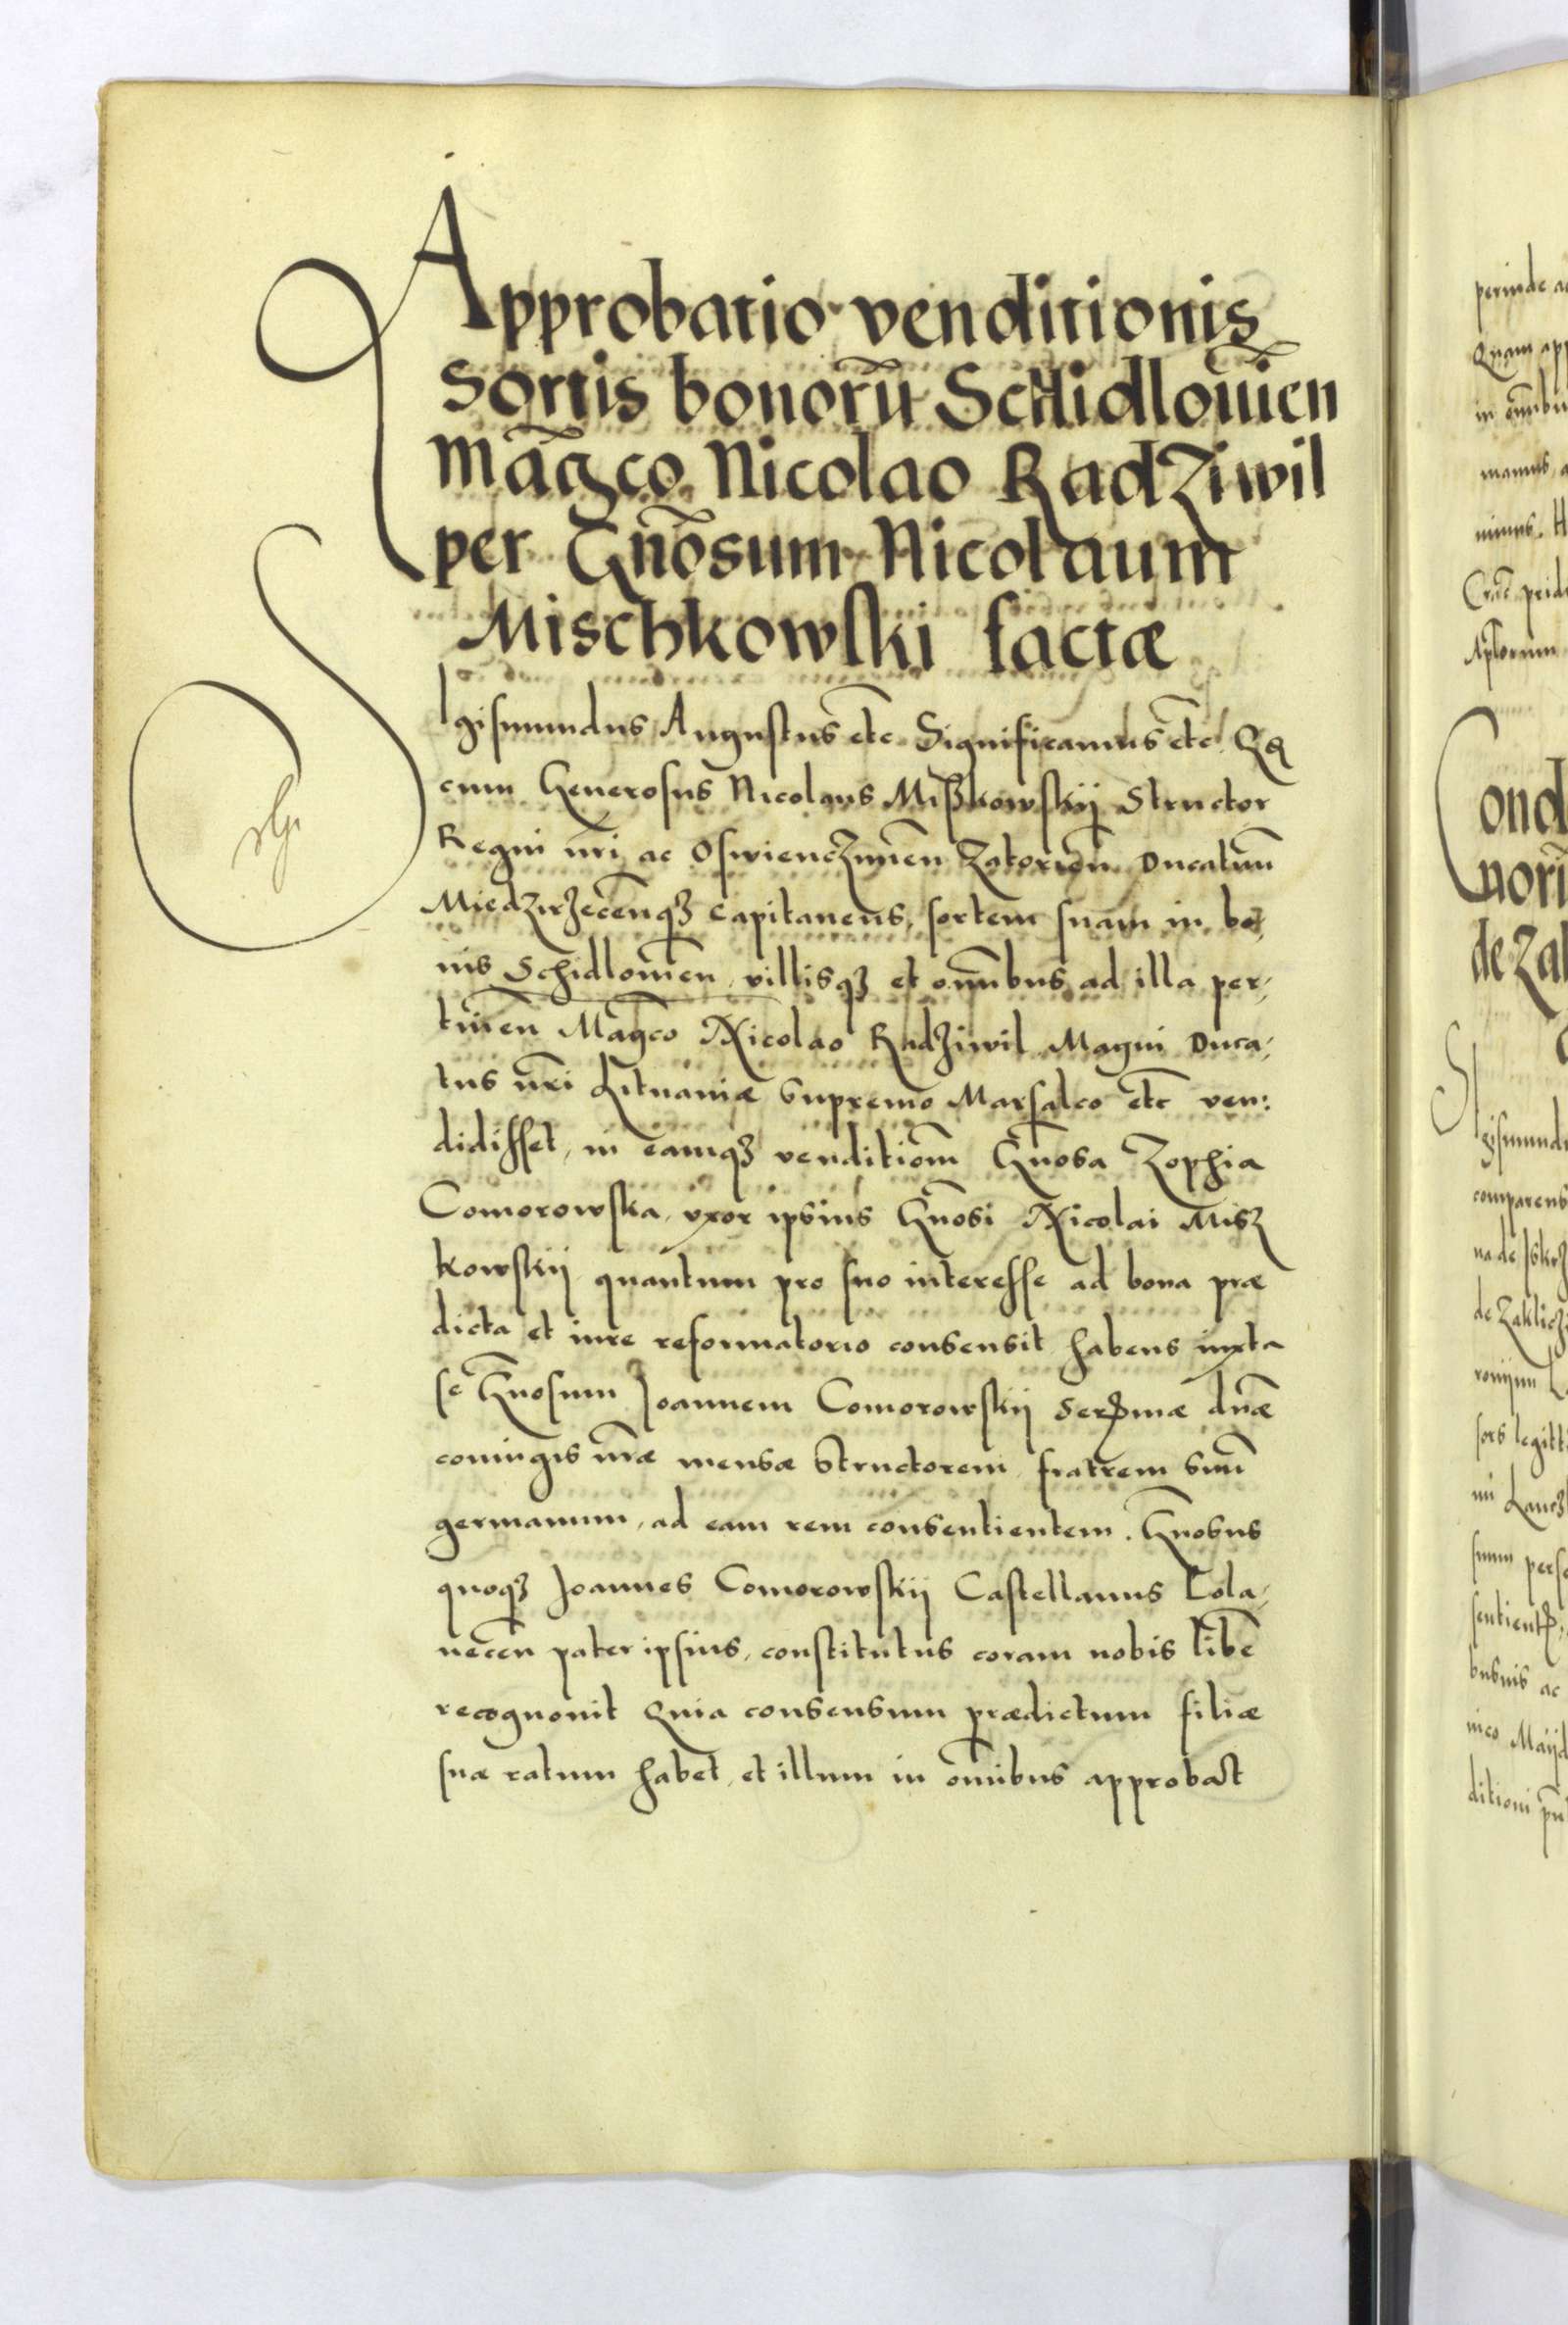 Approbatio venditionis
Sortis bonorũ Schidlowien̄
mag̃co Nicolao RadZiwil
per Gñosum Nicolaum
Mischkowski factæ
Sigismundus Augustus etc̃ Significamus etc̃ Qđ
cum Generosus Nicolaus Mißkowskij Structor
Regni nr̃i ac OswienczimeñZatorieñ Ducatuũ
MiedzirZeceñqʒ capitaneus, sortem suam in bo,
nis Schidlowieñ, villisqʒ et om̃ibus ad illa per,
tineñ Mag̃co Nicolao RadZiwil Magni Duca,
tus nr̃i Lituaniæ Supremo Marsalco etc̃ ven:
didisset, in eamqʒ venditiom̃ Gñosa Zophia
Comorowska, vxor ipsius Gñosi Nicolai Misz
kowskij quantum pro suo interesse ad bona præ
dicta et iure reformatorio consensit habens iuxta
se Gñosum Joannem Comorowskij Serᵐæ dñæ
coniugis nr̃æ mensæ Structorem, fratrem suũ
germanum, ad eam rem consentientem. Gñosus
quoqʒ Joannes Comorowskij Castellanus Pola,
neceñ pater ipsius, constitutus coram nobis libẽ
recognouit Quia consensum prædictum filiæ
suæ ratum habet, et illum in om̃ibus approbat
perinde
Quam
in om̃ibus
manus
Crac̃
Cond
de Zal
comparens
ditioni